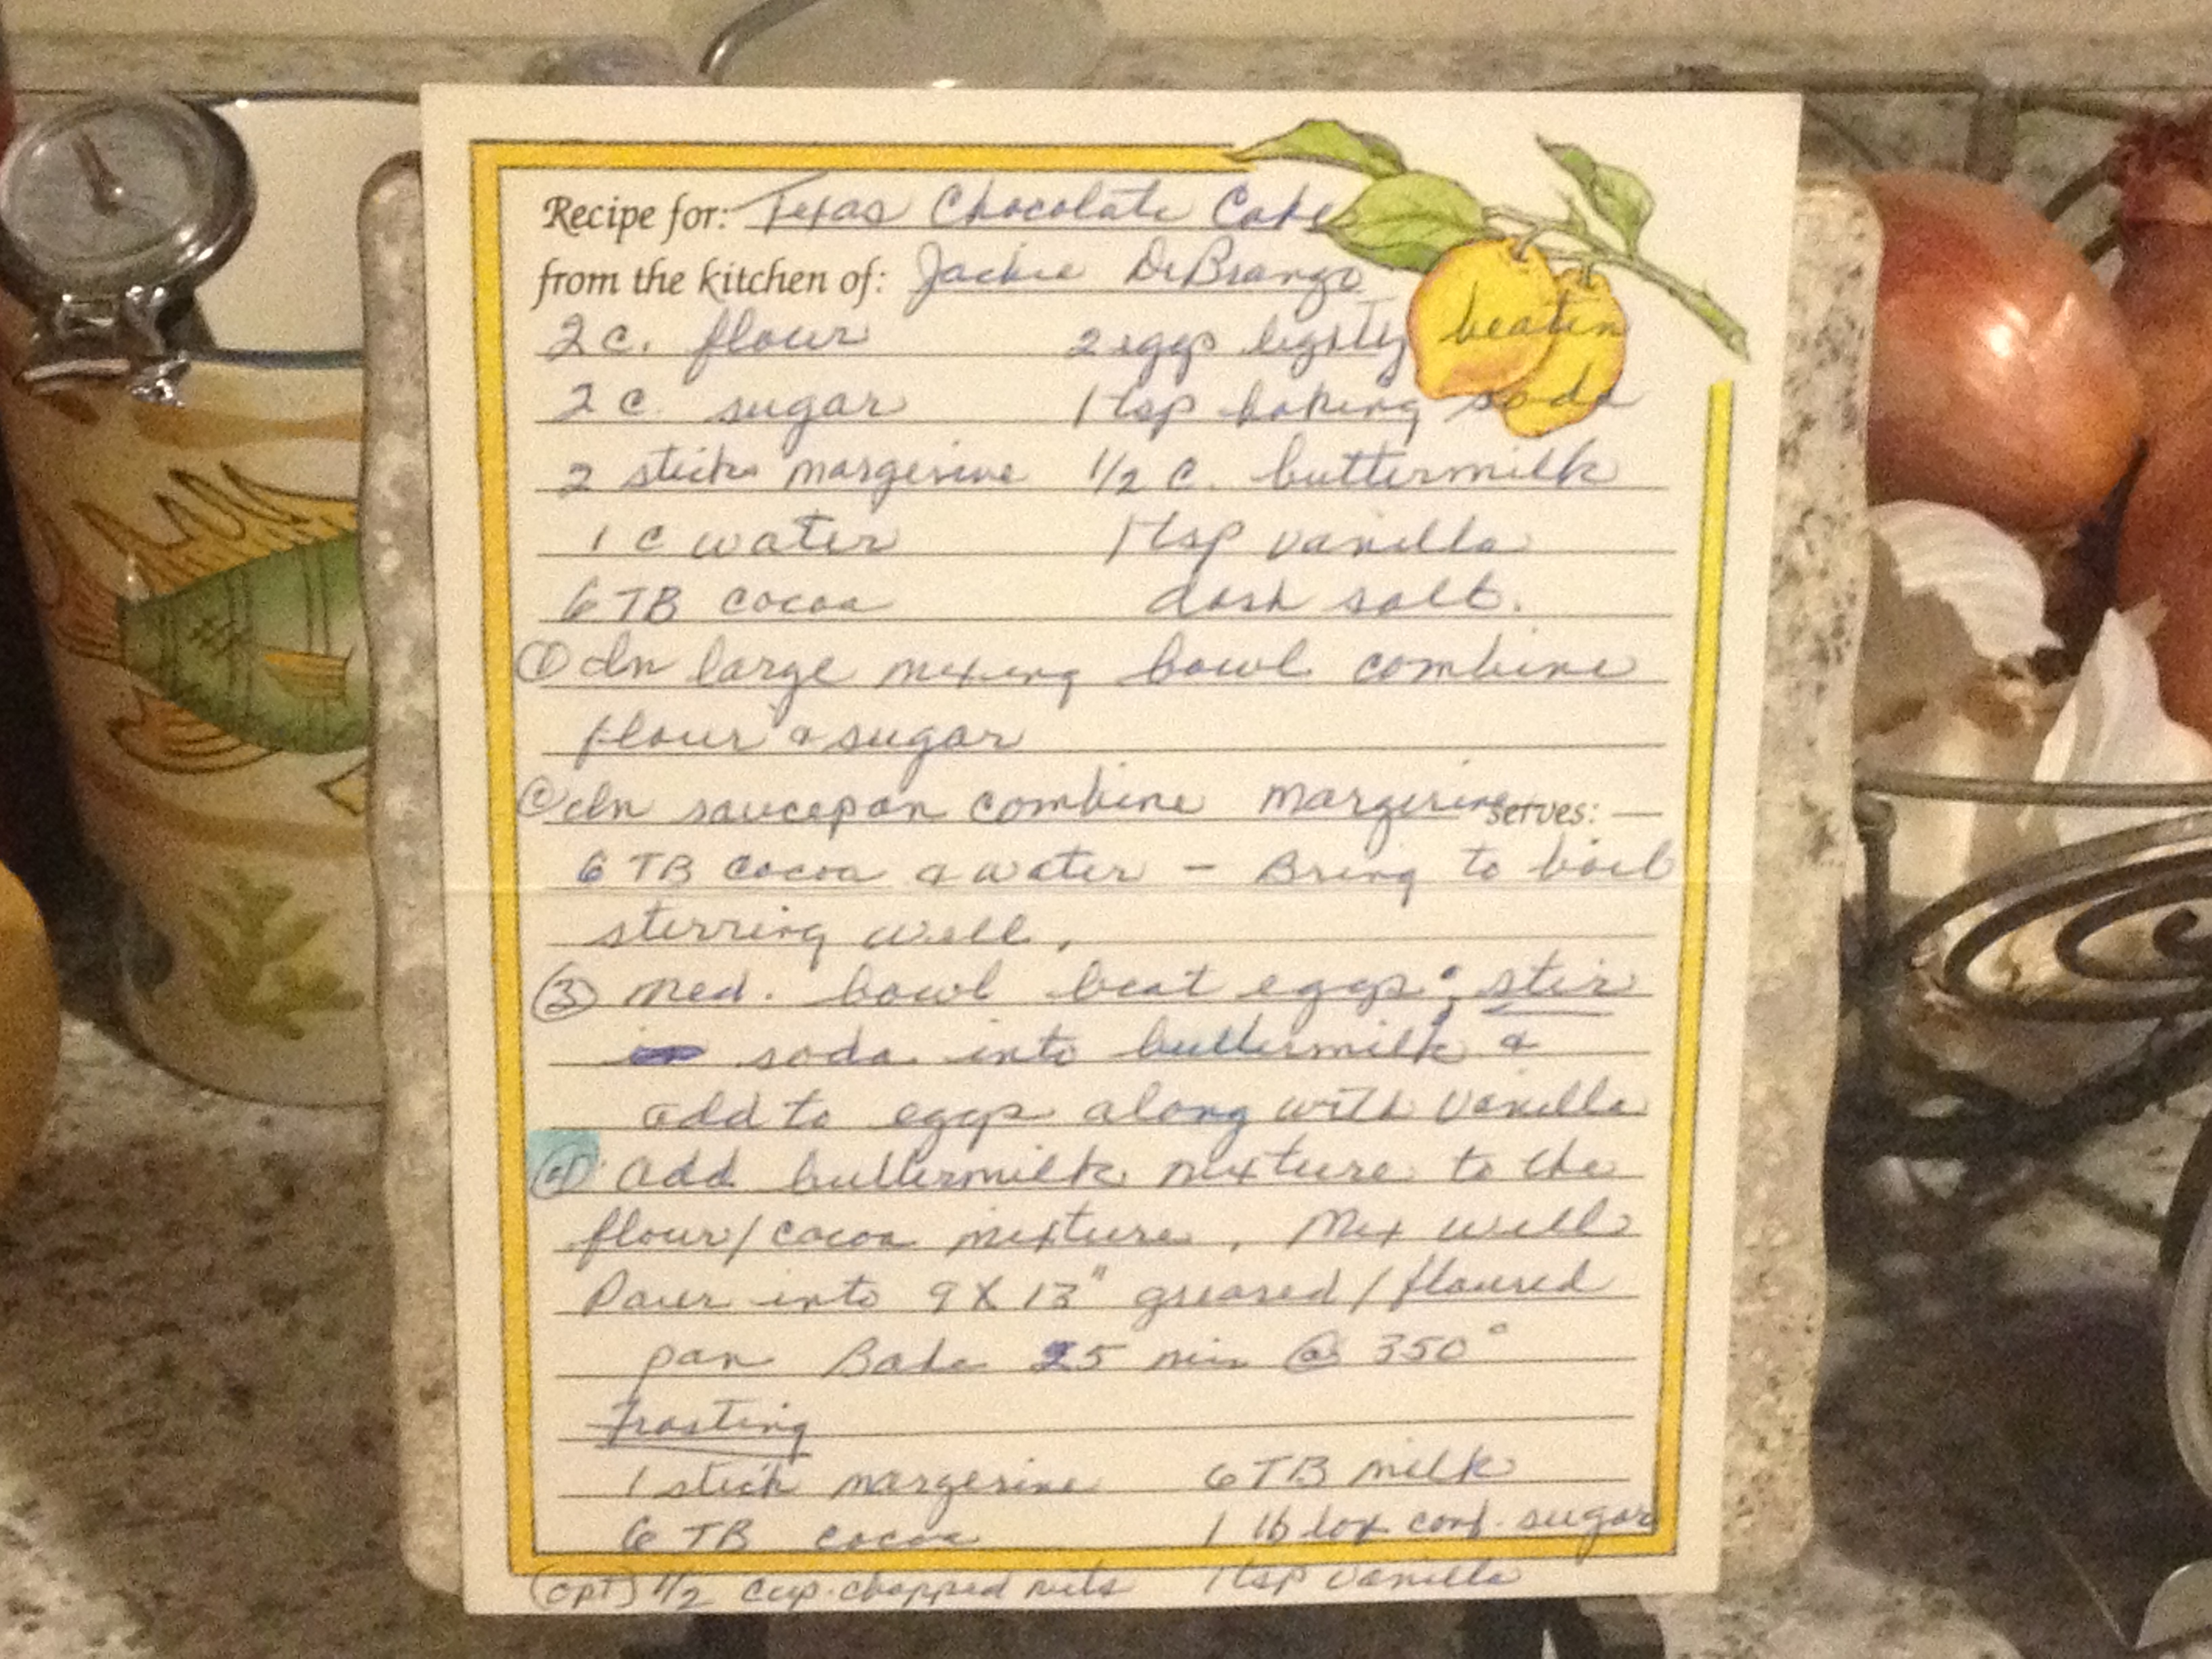 Recipe for: Texas Chocolate Cake
from the kitchen of: Jackie DeBrango
2 c. flour 2 eggs lightly beaten
2 c. sugar 1 tsp baking soda
2 sticks margerine 1/2 c. buttermilk
1 c water 1 tsp vanilla
6 TB cocoa dash salt.
① In large mixing bowl combine
flour & sugar
② In saucepan combine margerine serves: —
6 TB cocoa & water – Bring to boil
sterring well.
③ Med. bowl beat eggs; stir
soda into buttermilk &
add to eggs along with vanilla
④ Add buttermilk mixture to the
flour/cocoa mixture. Mix well
Pour into 9 X 13" greased/floured
pan Bake 25 min @ 350°
Frosting
1 stick margerine 6 TB milk
6 TB cocoa 1 lb box conf. sugar
(opt) 1/2 cup chopped nuts 1 tsp vanilla